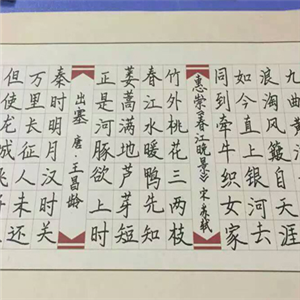 九曲
浪淘风簸自天涯
如今直上银河去
同到牵牛织女家
惠崇《春江晚景》宋 苏轼
竹外桃花三两枝
春江水暖鸭先知
蒌蒿满地芦芽短
正是河豚欲上时
出塞 唐·王昌龄
秦时明月汉时关
万里长征人未还
但使龙